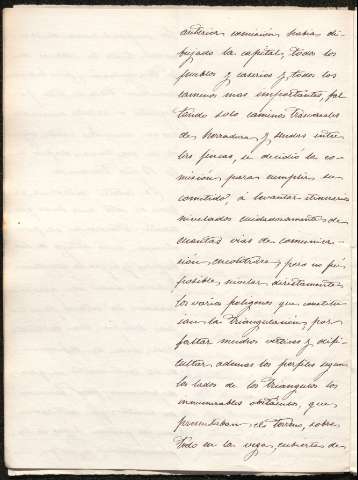 anterior comisión habia di-
bujado la capital, todos los
pueblos y caserios y todos los
caminos mas importantes, fal-
tando solo caminos transversales
de herradura y sendas entre
las fincas, se decidió la co-
misión para cumplir su
cometido, á levantar itinerarios
nivelados cuidadosamente de
cuantas vias de comunica-
ción encontrara; pero no fué
posible nivelar directamente
los varios poligonos que constitu-
ian la triangulación, por
faltar muchos vértices y difi-
cultar ademas los perfiles segun
los lados de los triangulos los
innumerables obstáculos, que
presentaban el terreno, sobre
todo en la vega, cubierta de